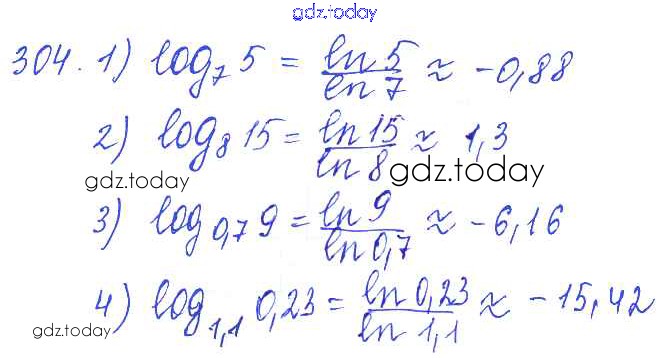 gdz.today
304. 1) log₇ 5 = ln 5 / ln 7 ≈ -0,88
2) log₈ 15 = ln 15 / ln 8 ≈ 1,3
gdz.today gdz.today
3) log₀,₇ 9 = ln 9 / ln 0,7 ≈ -6,16
4) log₁,₁ 0,23 = ln 0,23 / ln 1,1 ≈ -15,42
gdz.today